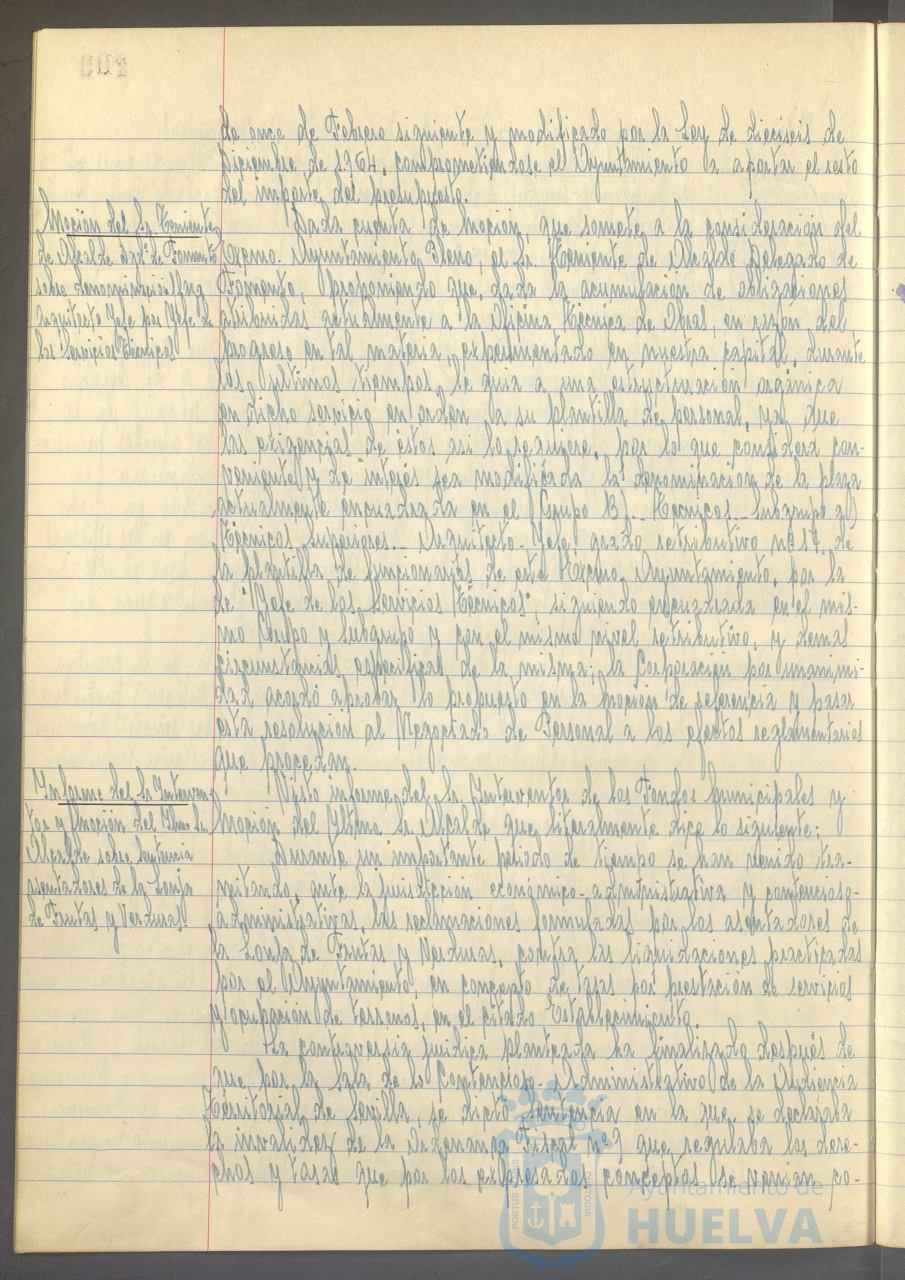 de once de Febrero siguiente y modificado por la Ley de dieciseis de
Diciembre de 1.964, comprometiendose el Ayuntamiento a aportar el resto
del importe del presupuesto.
Moción del Sr. Teniente
de Alcalde Delº de Fomento
sobre denominación Plaza
Arquitecto Jefe por Jefe de
los Servicios Técnicos
Dada cuenta de Moción, que somete a la consideración del
Excmo. Ayuntamiento Pleno, el Sr. Teniente de Alcalde Delegado de
Fomento, proponiendo que, dada la acumulación de obligaciones
atribuidas actualmente a la Oficina Técnica de Obras, en razón del
progreso en tal materia, experimentado en nuestra capital, durante
los ultimos tiempos, le guia a una estructuración orgánica
en dicho servicio en orden a su plantilla de personal, ya que
las exigencias de éstos asi lo requiere, por lo que considera con-
veniente y de interés sea modificada la denominacion de la plaza
actualmente encuadrada en el Grupo B).- Técnicos.- Subgrupo a)
Técnicos Superiores.- Arquitecto-Jefe grado retributivo nº 17, de
la plantilla de funcionarios de este Excmo. Ayuntamiento, por la
de "Jefe de los Servicios Técnicos", siguiendo encuadrada en el mis-
mo Grupo y Subgrupo y con el mismo nivel retributivo, y demas
circunstancias especificas de la misma; la Corporación por unanimi-
dad acordó aprobar lo propuesto en la Moción de referencia y pasar
esta resolución al Negociado de Personal a los efectos reglamentarios
que procedan.
Informe del Sr Interven-
tor y moción del Iltmo Sr.
Alcalde sobre sentencia
asentadores de la Lonja
de Frutas y Verduras.
Visto informe del Sr. Interventor de los Fondos municipales y
Moción del Iltmo Sr. Alcalde que literalmente dice lo siguiente:
Durante un importante período de tiempo se han venido tra-
mitando, ante la jurisdicción económico-administrativa y contencioso-
administrativas, las reclamaciones formuladas por los asentadores de
la Lonja de Frutas y Verduras, contra las liquidaciones practicadas
por el Ayuntamiento, en concepto de tasas por prestación de servicios
y ocupación de terrenos, en el citado Establecimiento.
La controversia juridica planteada ha finalizado después de
que, por la Sala de lo Contencioso-Administrativo de la Audiencia
Territorial de Sevilla, se dictó sentencia en la que se declaraba
la invalidez de la Ordenanza Fiscal nº 9 que regulaba los dere-
chos y tasas que por los expresados conceptos se venian co-
Ayuntamiento de
HUELVA